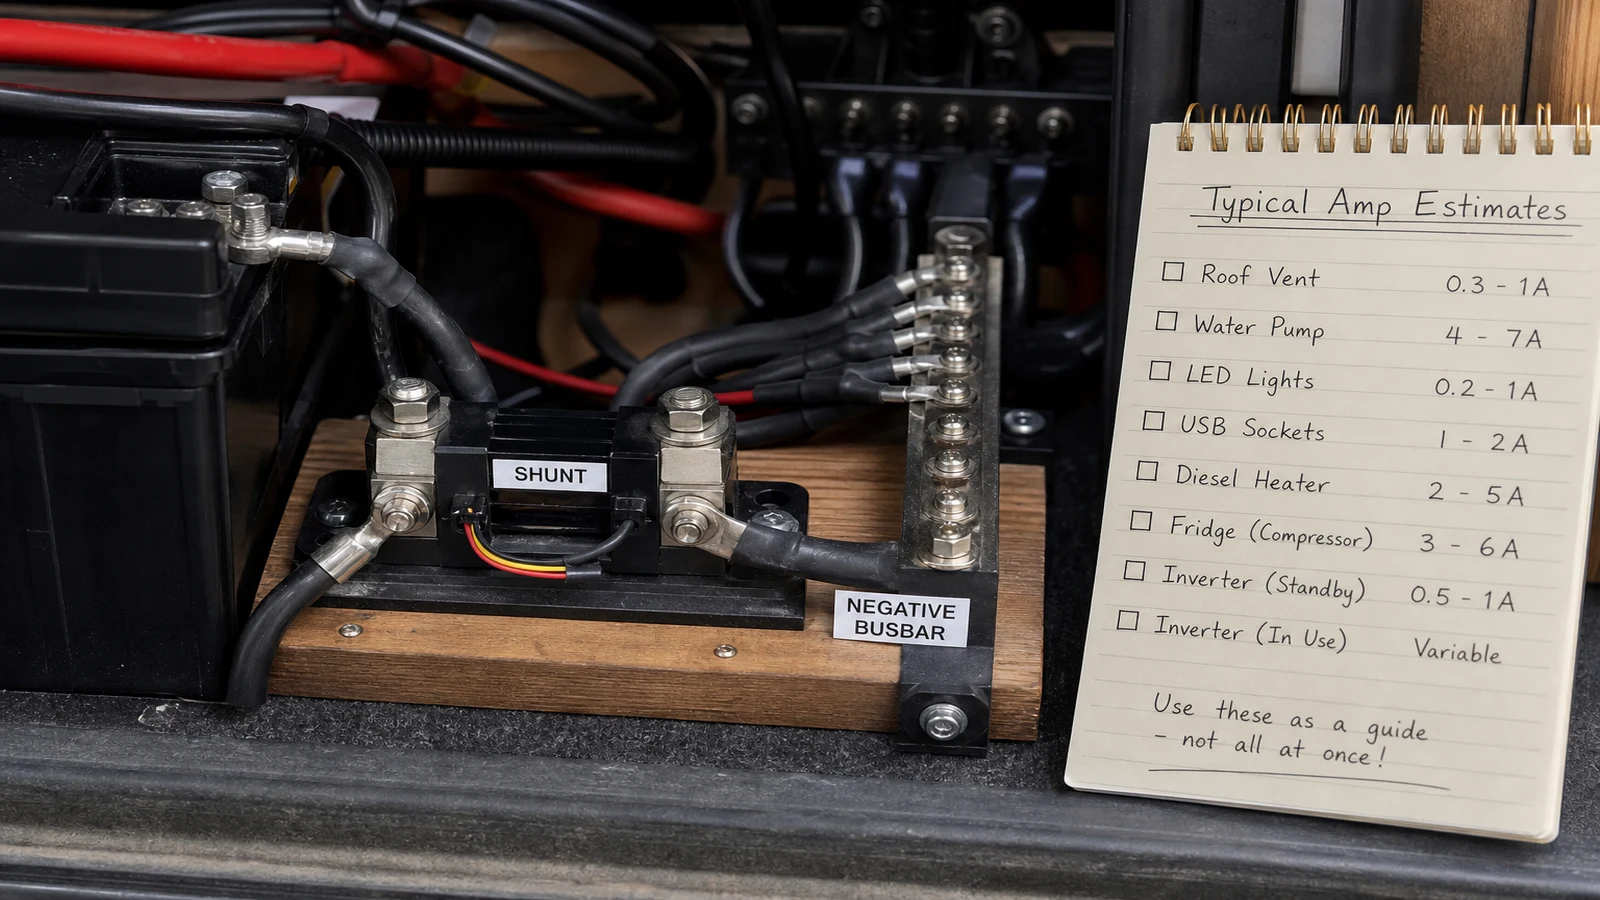 SHUNT
NEGATIVE
BUSBAR
Typical Amp Estimates
Roof Vent 0.3 - 1A
Water Pump 4 - 7A
LED Lights 0.2 - 1A
USB Sockets 1 - 2A
Diesel Heater 2 - 5A
Fridge (Compressor) 3 - 6A
Inverter (Standby) 0.5 - 1A
Inverter (In Use) Variable
Use these as a guide
- not all at once!